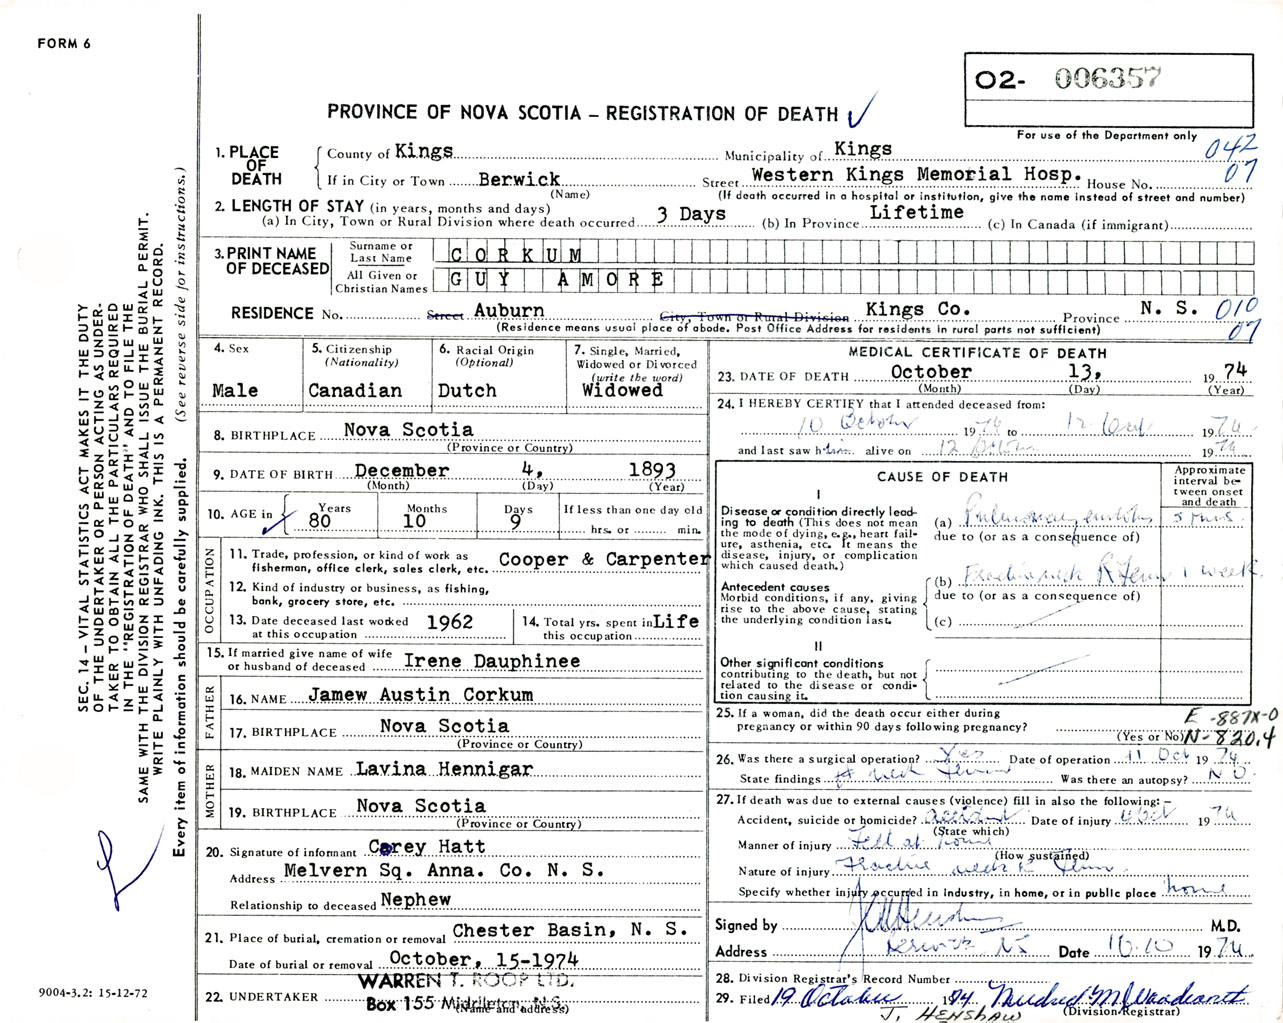 FORM 6
O2- 006357
PROVINCE OF NOVA SCOTIA – REGISTRATION OF DEATH
For use of the Department only
042
07
1. PLACE OF DEATH
County of Kings Municipality of Kings
If in City or Town Berwick Street Western Kings Memorial Hosp. House No.
(Name) (If death occurred in a hospital or institution, give the name instead of street and number)
2. LENGTH OF STAY (in years, months and days)
(a) In City, Town or Rural Division where death occurred 3 Days (b) In Province Lifetime (c) In Canada (if immigrant)
3. PRINT NAME OF DECEASED
Surname or Last Name CORKUM
All Given or Christian Names GUY AMORE
RESIDENCE No. Street Auburn City, Town or Rural Division Kings Co. Province N. S. 010
07
(Residence means usual place of abode. Post Office Address for residents in rural parts not sufficient)
4. Sex
Male
5. Citizenship
(Nationality)
Canadian
6. Racial Origin
(Optional)
Dutch
7. Single, Married, Widowed or Divorced
(write the word)
Widowed
8. BIRTHPLACE Nova Scotia
(Province or Country)
9. DATE OF BIRTH December 4, 1893
(Month) (Day) (Year)
10. AGE in Years Months Days If less than one day old
80 10 9 hrs. or min.
OCCUPATION
11. Trade, profession, or kind of work as
fisherman, office clerk, sales clerk, etc. Cooper & Carpenter
12. Kind of industry or business, as fishing,
bank, grocery store, etc.
13. Date deceased last worked
at this occupation 1962
14. Total yrs. spent in
this occupation Life
15. If married give name of wife
or husband of deceased Irene Dauphinee
FATHER
16. NAME Jamew Austin Corkum
17. BIRTHPLACE Nova Scotia
(Province or Country)
MOTHER
18. MAIDEN NAME Lavina Hennigar
19. BIRTHPLACE Nova Scotia
(Province or Country)
20. Signature of informant Carey Hatt
Address Melvern Sq. Anna. Co. N. S.
Relationship to deceased Nephew
21. Place of burial, cremation or removal Chester Basin, N. S.
Date of burial or removal October, 15-1974
WARREN T. ROOP LTD.
22. UNDERTAKER Box 155 Middleton, N.S.
(Name and address)
MEDICAL CERTIFICATE OF DEATH
23. DATE OF DEATH October 13, 1974
(Month) (Day) (Year)
24. I HEREBY CERTIFY that I attended deceased from:
10 October 1974 to 12 1974
and last saw him alive on 12 October 1974
CAUSE OF DEATH
Approximate interval between onset and death
I
Disease or condition directly leading to death (This does not mean the mode of dying, e.g., heart failure, asthenia, etc. It means the disease, injury, or complication which caused death.)
(a) Pulmonary embolus 5
due to (or as a consequence of)
Antecedent causes
Morbid conditions, if any, giving rise to the above cause, stating the underlying condition last.
(b) Fracture neck R Femur 1 week
due to (or as a consequence of)
(c)
II
Other significant conditions
contributing to the death, but not related to the disease or condition causing it.
25. If a woman, did the death occur either during
pregnancy or within 90 days following pregnancy?
(Yes or No)
E-887X-0
N-820.4
26. Was there a surgical operation? Yes Date of operation 11 Oct 1974
State findings # neck Femur Was there an autopsy? NO
27. If death was due to external causes (violence) fill in also the following: –
Accident, suicide or homicide? accident Date of injury Oct 1974
(State which)
Manner of injury Fell at home
(How sustained)
Nature of injury Fracture neck R Femur
Specify whether injury occurred in industry, in home, or in public place home
Signed by M.D.
Address Berwick NS Date 16.10 1974
28. Division Registrar's Record Number
29. Filed 19 October 1974
(Division Registrar)
J. HENSHAW
SEC. 14 – VITAL STATISTICS ACT MAKES IT THE DUTY
OF THE UNDERTAKER OR PERSON ACTING AS UNDER-
TAKER TO OBTAIN ALL THE PARTICULARS REQUIRED
IN THE "REGISTRATION OF DEATH" AND TO FILE THE
SAME WITH THE DIVISION REGISTRAR WHO SHALL ISSUE THE BURIAL PERMIT.
WRITE PLAINLY WITH UNFADING INK. THIS IS A PERMANENT RECORD.
Every item of information should be carefully supplied. (See reverse side for instructions.)
9004-3.2: 15-12-72